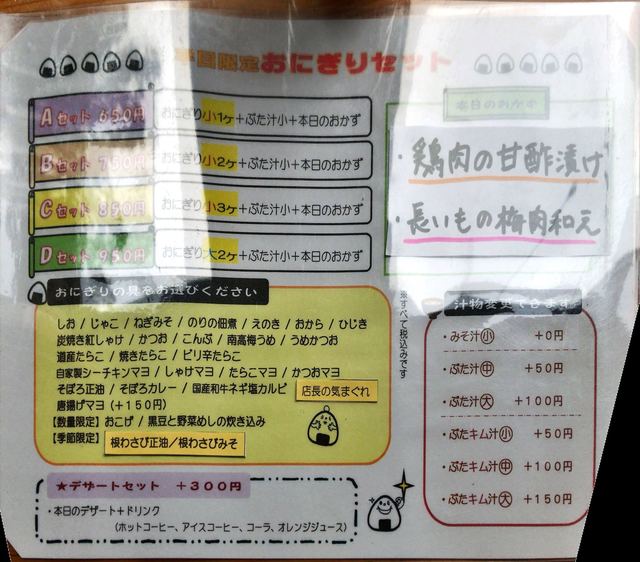 平日限定おにぎりセット
Aセット 650円 おにぎり小1ヶ+ぶた汁小+本日のおかず
Bセット 750円 おにぎり小2ヶ+ぶた汁小+本日のおかず
Cセット 850円 おにぎり小3ヶ+ぶた汁小+本日のおかず
Dセット 950円 おにぎり大2ヶ+ぶた汁小+本日のおかず
本日のおかず
・鶏肉の甘酢漬け
・長いもの梅肉和え
おにぎりの具をお選びください
しお / じゃこ / ねぎみそ / のりの佃煮 / えのき / おから / ひじき
炭焼き紅しゃけ / かつお / こんぶ / 南高梅うめ / うめかつお
道産たらこ / 焼きたらこ / ピリ辛たらこ
自家製シーチキンマヨ / しゃけマヨ / たらこマヨ / かつおマヨ
そぼろ正油 / そぼろカレー / 国産和牛ネギ塩カルビ
店長の気まぐれ
唐揚げマヨ (+150円)
【数量限定】 おこげ / 黒豆と野菜めしの炊き込み
【季節限定】 根わさび正油/根わさびみそ
※すべて税込みです
汁物変更できます
・みそ汁小 +0円
・ぶた汁中 +50円
・ぶた汁大 +100円
・ぶたキム汁小 +50円
・ぶたキム汁中 +100円
・ぶたキム汁大 +150円
★デザートセット +300円
・本日のデザート+ドリンク
(ホットコーヒー、アイスコーヒー、コーラ、オレンジジュース)